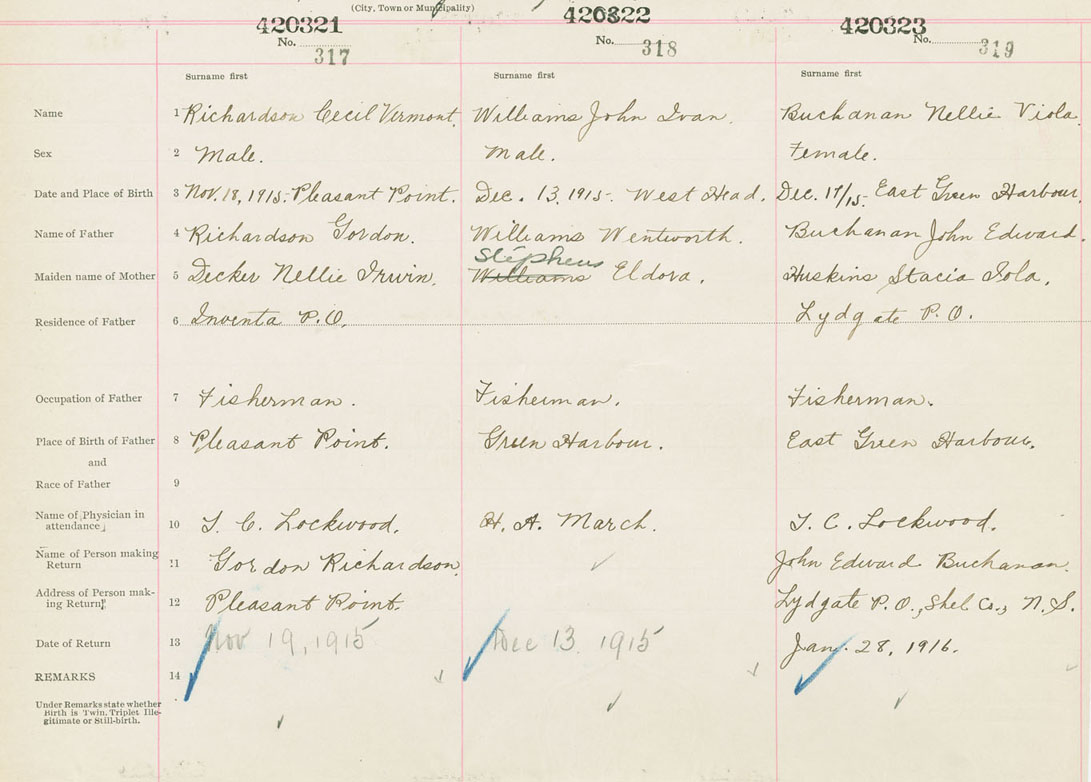 (City, Town or Municipality)
420321 420322 420323
No. 317 No. 318 No. 319
Surname first Surname first Surname first
Name 1 Richardson Cecil Vermont. Williams John Ivan. Buchanan Nellie Viola.
Sex 2 Male. Male. Female.
Date and Place of Birth 3 Nov. 18, 1915- Pleasant Point. Dec. 13, 1915- West Head. Dec. 17/15- East Green Harbour.
Name of Father 4 Richardson Gordon. Williams Wentworth. Buchanan John Edward.
Stephens
Maiden name of Mother 5 Decker Nellie Irwin. Williams Eldora. Huskins Stacia Iola.
Residence of Father 6 Inventa P.O. Lydgate P.O.
Occupation of Father 7 Fisherman. Fisherman. Fisherman.
Place of Birth of Father 8 Pleasant Point. Green Harbour. East Green Harbour.
and
Race of Father 9
Name of Physician in
attendance 10 L. C. Lockwood. H. A. March. L. C. Lockwood.
Name of Person making
Return 11 Gordon Richardson. John Edward Buchanan.
Address of Person mak-
ing Return 12 Pleasant Point. Lydgate P.O., Shel Co., N.S.
Date of Return 13 Nov 19, 1915 Dec 13, 1915 Jan. 28, 1916.
REMARKS 14
Under Remarks state whether
Birth is Twin, Triplet Ille-
gitimate or Still-birth.